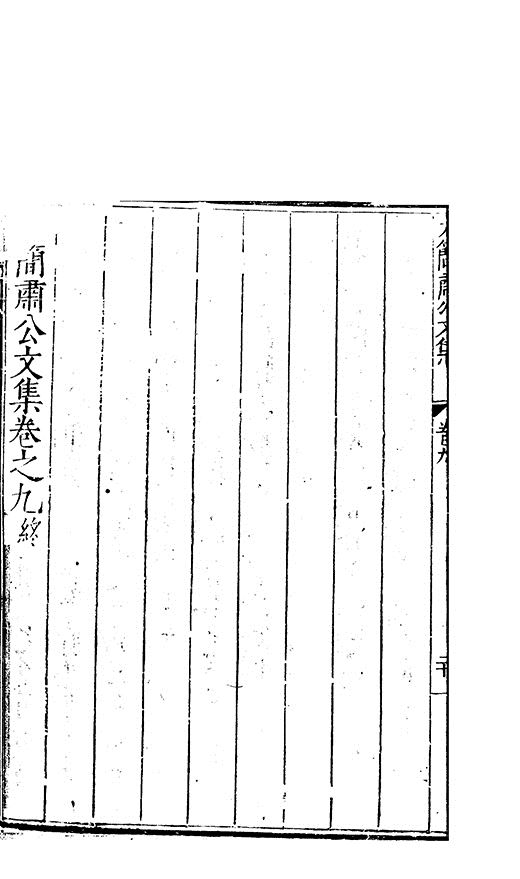 簡肅公文集
卷九
簡肅公文集卷之九終